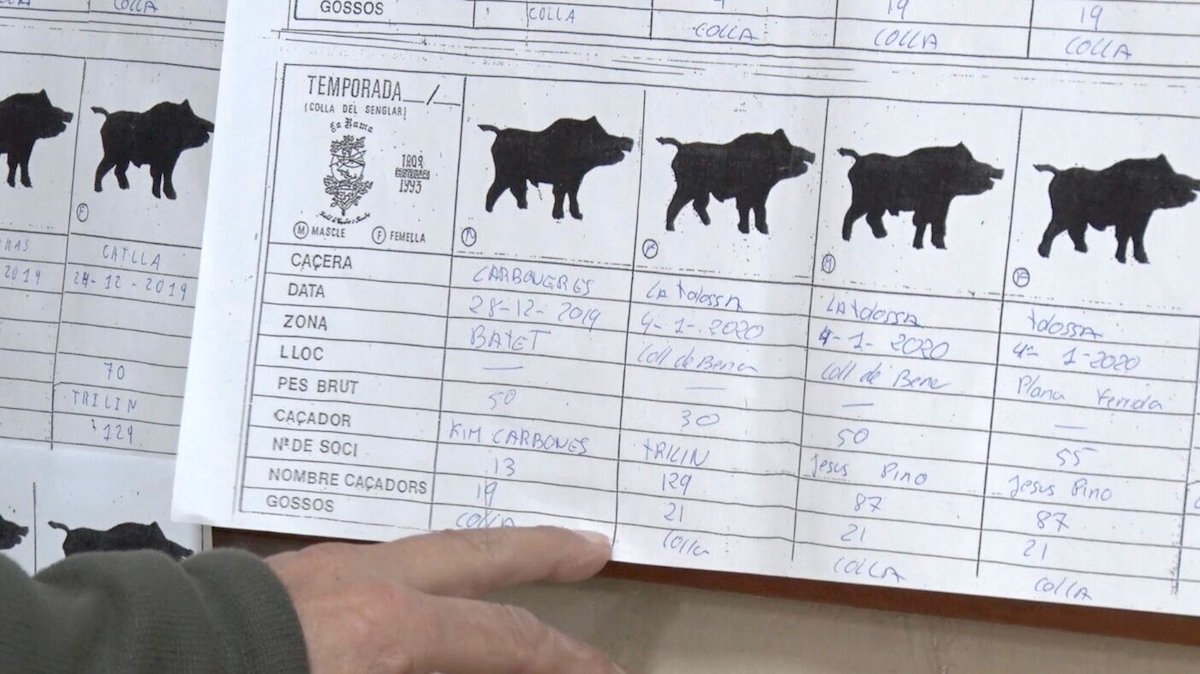 GOSSOS COLLA COLLA 19 COLLA 19 COLLA
TEMPORADA __/__
(COLLA DEL SENGLAR)
La Rama
1993
Ⓜ MASCLE Ⓕ FEMELLA
CAÇERA CARBONERES LA TOLOSSA LA TOLOSSA TOLOSSA
DATA 28-12-2019 4-1-2020 4-1-2020 4-1-2020
ZONA BATET Coll de Coll de Plana
LLOC — — — —
PES BRUT 50 30 50 55
CAÇADOR KIM CARBONES TRILIN Jesus Pino Jesus Pino
Nº DE SOCI 13 129 87 87
NOMBRE CAÇADORS 19 21 21 21
GOSSOS COLLA Colla COLLA COLLA
COLLA
F
CATLLA
2019 -12-2019
70
TRILIN
129